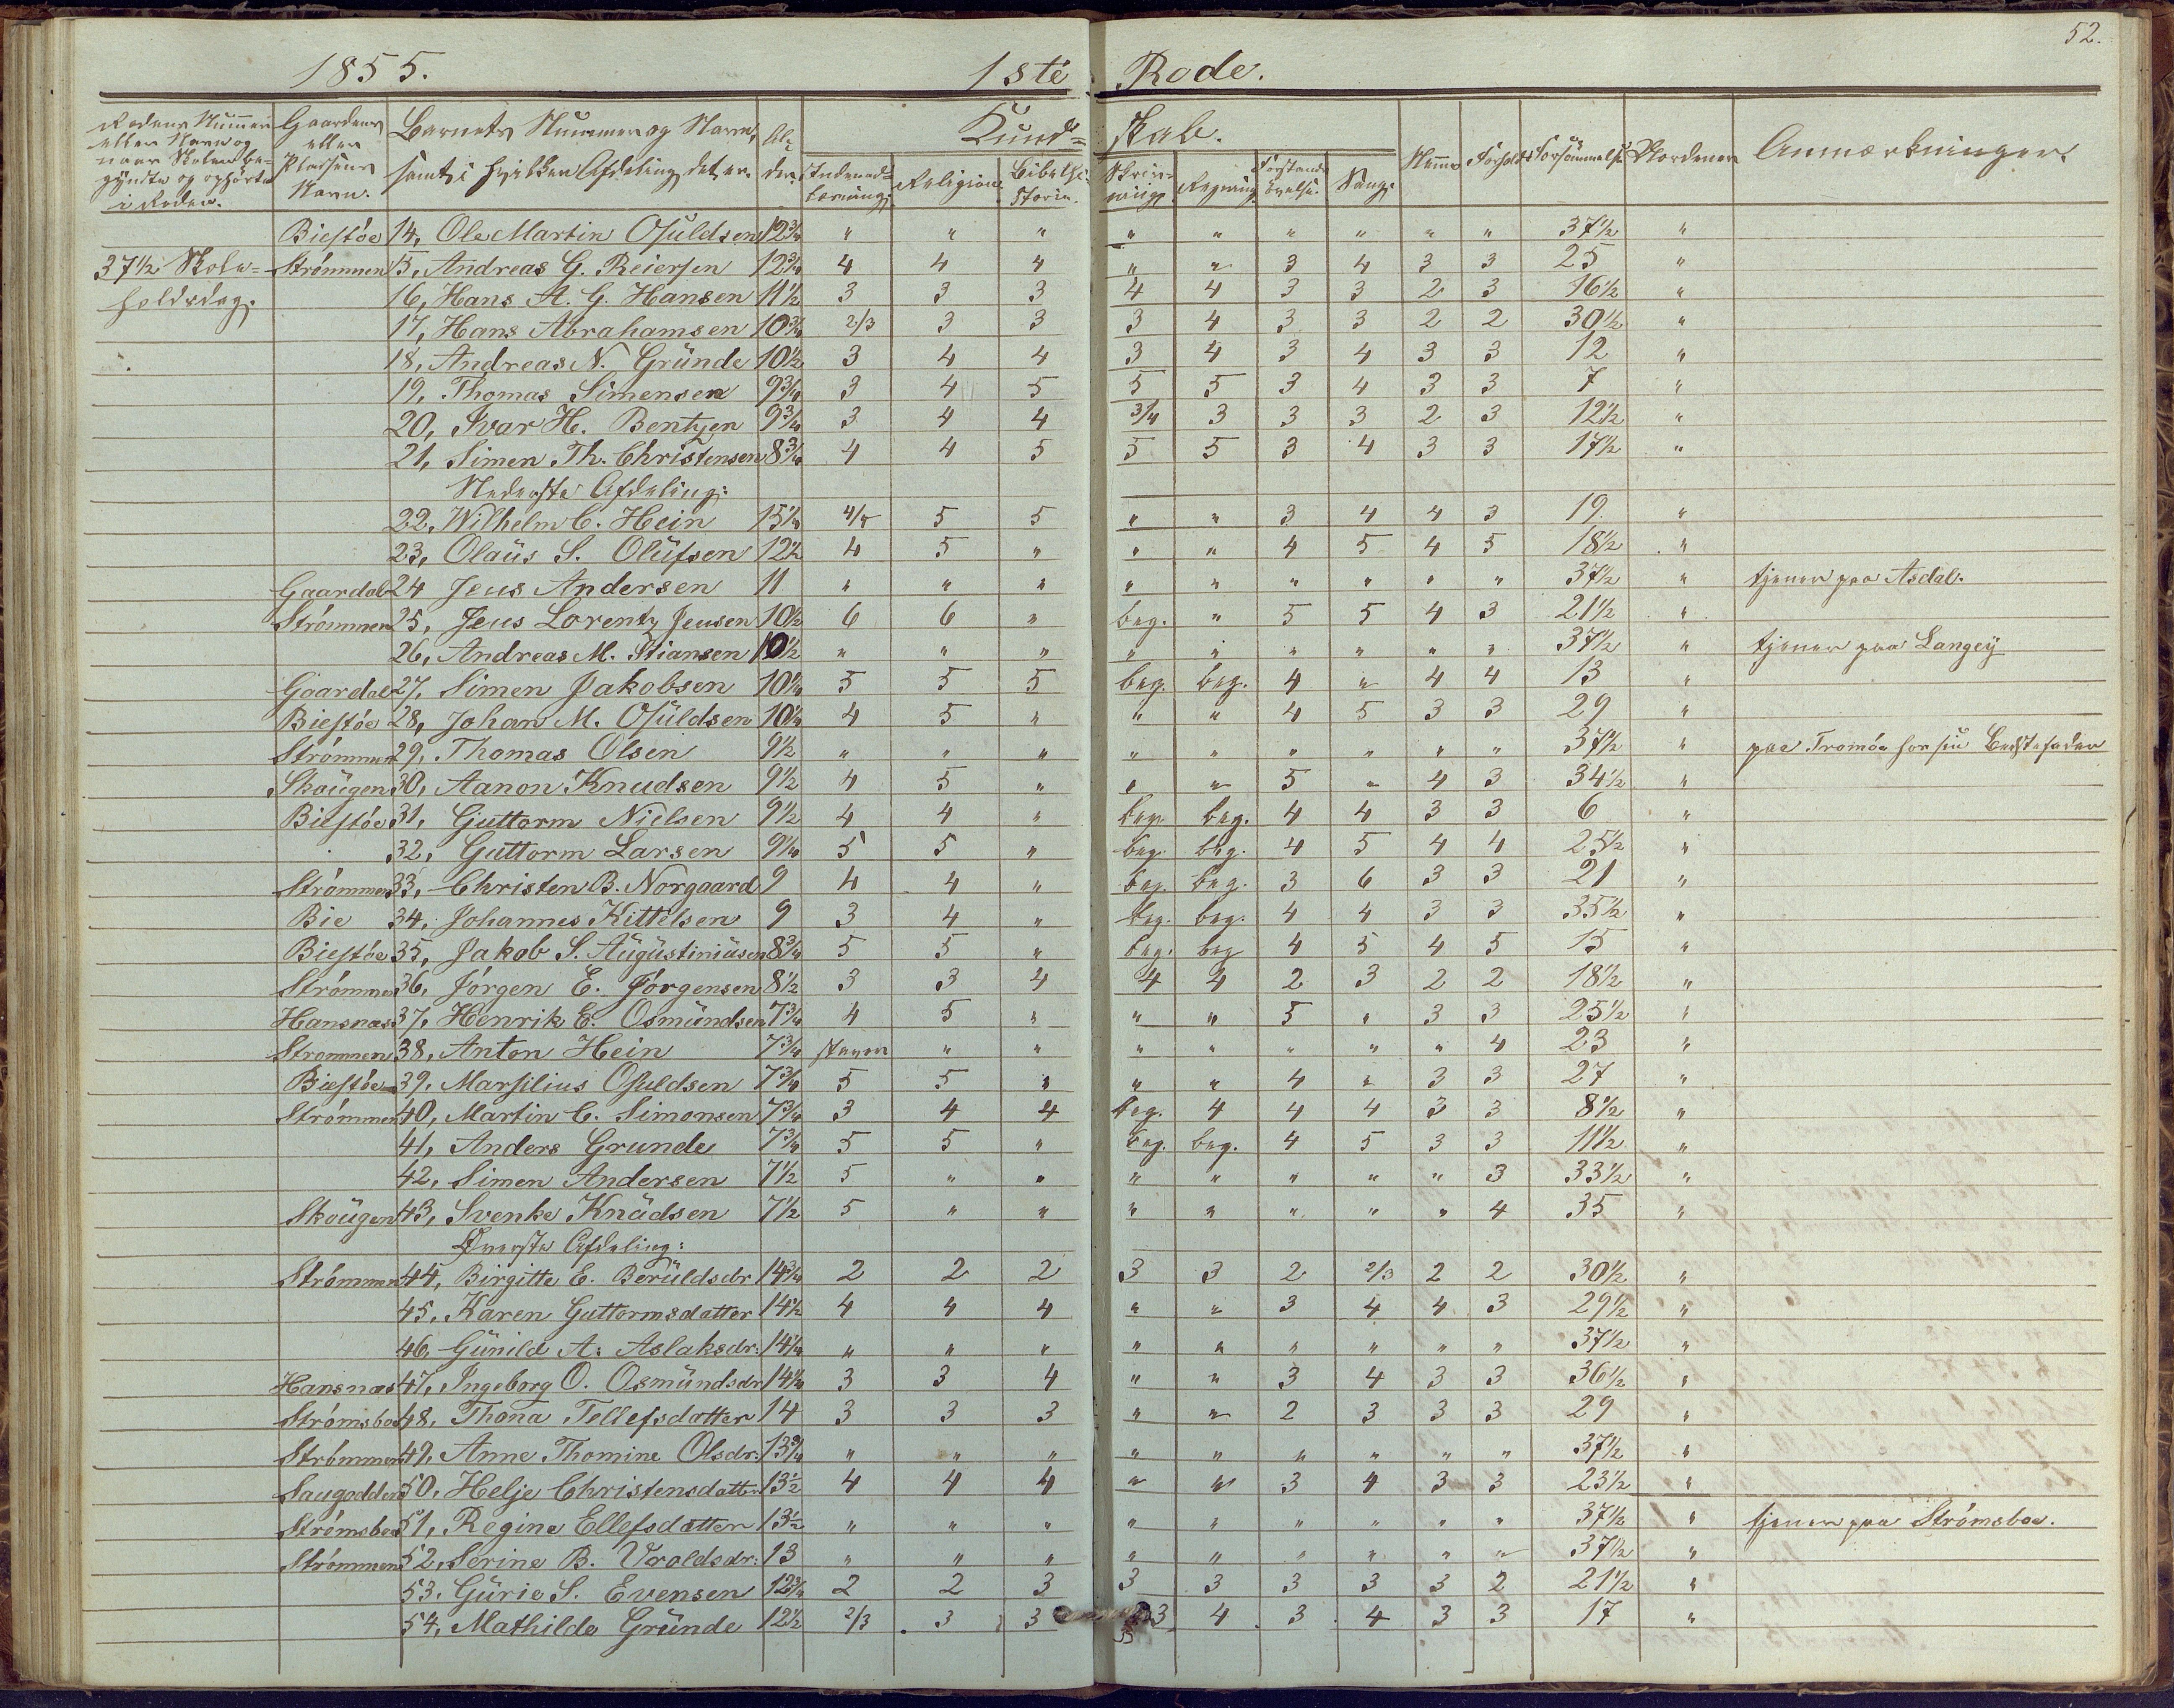 52.
1855. 1ste Rode.
Rodens Nummer eller Navn og naar Skolen begyndte og ophørte i Roden. | Gaardens eller Pladsens Navn. | Barnets Nummer og Navn, samt i hvilken Afdeling det er. | Alder. | Kundskab. | Anmærkninger.
Indenadlæsning. | Religion. | Bibelhistorie. | Skrivning. | Regning. | Forstandsøvelse. | Sang. | Nemme | Forhold | Forsømmelse | Nordener
Biestøe 14, Ole Martin Osuldsen 12¾ " " " " " " " " " 37½ "
37½ Skole- Strømmen 15, Andreas G. Reiersen 12¾ 4 4 4 " " 3 4 3 3 25 "
holdsdag. 16, Hans A. G. Hansen 11½ 3 3 3 4 4 3 3 2 3 16½ "
17, Hans Abrahamsen 10¾ 2/3 3 3 3 4 3 3 2 2 30½ "
18, Andreas N. Gründe 10½ 3 4 4 3 4 3 4 3 3 12 "
19, Thomas Simensen 9¾ 3 4 5 5 5 3 4 3 3 7 "
20, Ivar H. Bentzen 9¾ 3 4 4 3/4 3 3 3 2 3 12½ "
21, Simen Th. Christensen 8¾ 4 4 5 5 5 3 4 3 3 17½ "
Nederste Afdeling:
22, Wilhelm C. Hein 15¼ 4/5 5 5 " " 3 4 4 3 19 "
23, Olaüs S. Olüfsen 12½ 4 5 " " " 4 5 4 5 18½ "
Gaardal 24 Jens Andersen 11 " " " " " " " " " 37½ " tjener paa Asdal.
Strømmen 25, Jens Lorentz Jensen 10½ 6 6 " beg. " 5 5 4 3 21½ "
26, Andreas M. Stiansen 10½ " " " " " " " " " 37½ " tjener paa Langey
Gaardal 27, Simen Jakobsen 10¼ 5 5 5 beg. beg. 4 " 4 4 13 "
Biestøe 28, Johan M. Osüldsen 10¼ 4 5 " " " 4 5 3 3 29 "
Strømmen 29, Thomas Olsen 9½ " " " " " " " " " 37½ " paa Tromøe hos sin Bedstefader
Skoügen 30, Aanon Knudsen 9½ 4 5 " " " 5 " 4 3 34½ "
Biestøe 31, Guttorm Nielsen 9½ 4 4 " beg. beg. 4 4 3 3 6 "
32, Guttorm Larsen 9¼ 5 5 " beg. beg. 4 5 4 4 25½ "
Strømmen 33, Christen B. Norgaard 9 4 4 " beg. beg. 3 6 3 3 21 "
Bie 34, Johannes Kittelsen 9 3 4 " beg. beg. 4 4 3 3 35½ "
Biestøe 35, Jakob S. Aügüstiniüsen 8¾ 5 5 " beg. beg 4 5 4 5 15 "
Strømmen 36, Jörgen E. Jörgensen 8½ 3 3 4 4 4 2 3 2 2 18½ "
Hansnæs 37, Henrik E. Osmündsen 7¾ 4 5 " " " 5 " 3 3 25½ "
Strømmen 38, Anton Hein 7¾ staver " " " " " " " 4 23 "
Biestøe 39, Marsilius Osuldsen 7¾ 5 5 " " " 4 " 3 3 27 "
Strømmen 40, Martin C. Simonsen 7¾ 3 4 4 beg. 4 4 4 3 3 8½ "
41, Anders Grunde 7¾ 5 5 " beg. beg. 4 5 3 3 11½ "
42, Simen Andersen 7½ 5 " " " " " " " 3 33½ "
Skoügen 43, Svenke Knüdsen 7½ 5 " " " " " " " 4 35 "
Øverste Afdeling:
Strømmen 44, Birgitte E. Berüldsdr 14¾ 2 2 2 3 3 2 2/3 2 2 30½ "
45, Karen Guttormsdatter 14½ 4 4 4 " " 3 4 4 3 29½ "
46, Günild A. Aslaksdr: 14¼ " " " " " " " " " 37½ "
Hansnæs 47, Ingeborg O. Osmündsdr 14¼ 3 3 4 " " 3 4 3 3 36½ "
Strømsboe 48, Thona Tellefsdatter 14 3 3 3 " " 2 3 3 3 29 "
Strømmen 49, Anne Thomine Olsdr: 13¾ " " " " " " " " " 37½ "
Saugodden 50, Helje Christensdatter 13½ 4 4 4 " " 3 4 3 3 23½ "
Strømsboe 51, Regine Ellefsdatter 13½ " " " " " " " " " 37½ " tjener paa Strømsboe.
Strømmen 52, Serine B. Vroldsdr: 13 " " " " " " " " " 37½ "
53, Gürie S. Evensen 12¾ 2 2 3 3 3 3 3 3 2 21½ "
54, Mathilde Gründe 12½ 2/3 3 3 3 4 3 4 3 3 17 "